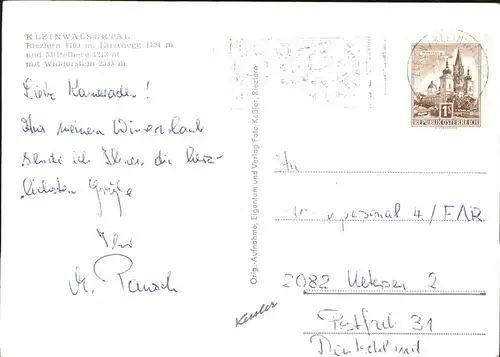 KLEINWALSERTAL
Riezlern 1100 m, Hirschegg 1124 m
und Mittelberg 1218 m
mit Widderstein 2533 m
Liebe Kameraden!
Aus meinem Winterurlaub
sende ich Ihnen die herz-
lichsten Grüße
Ihr
M.
Orig.-Aufnahme, Eigentum und Verlag Foto Keßler, Riezlern
REPUBLIK ÖSTERREICH
1S
An
personal 4/FAR
2082 Uetersen 2
Postfach 31
Deutschland
Kessler